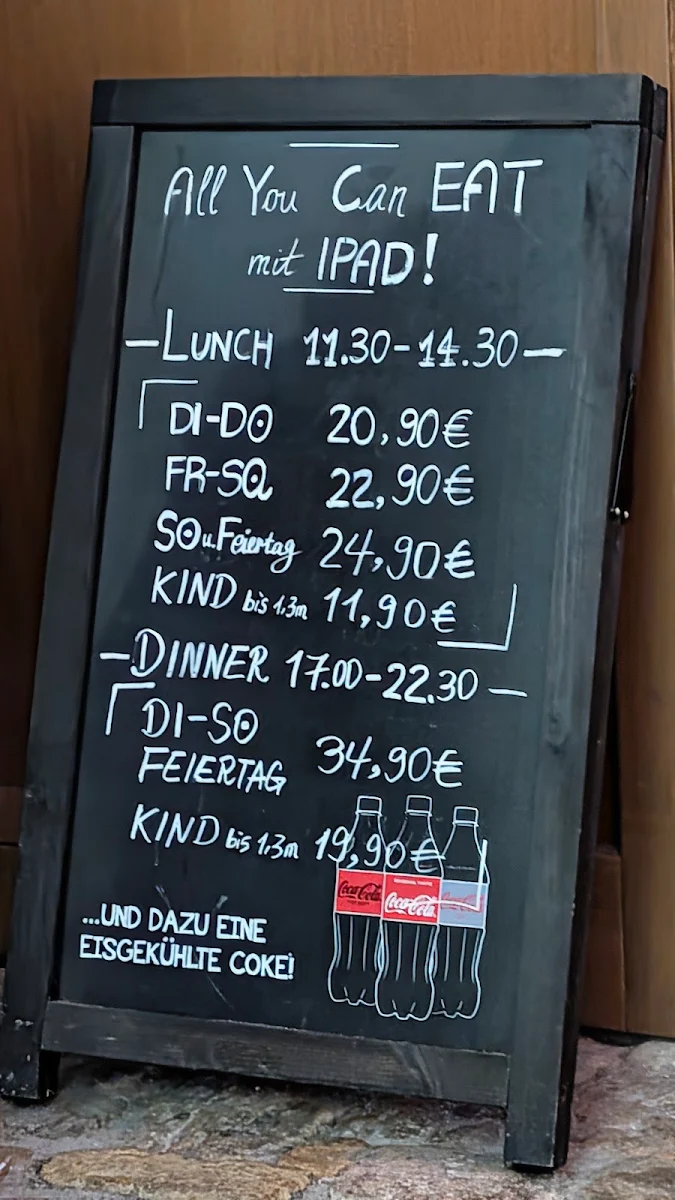 All You Can EAT
mit IPAD!
—LUNCH 11.30-14.30—
DI-DO 20,90€
FR-SA 22,90€
SO u. Feiertag 24,90€
KIND bis 1,3m 11,90€
—DINNER 17.00-22.30—
DI-SO
FEIERTAG 34,90€
KIND bis 1,3m 19,90€
...UND DAZU EINE
EISGEKÜHLTE COKE!
Coca-Cola Coca-Cola Coca-Cola